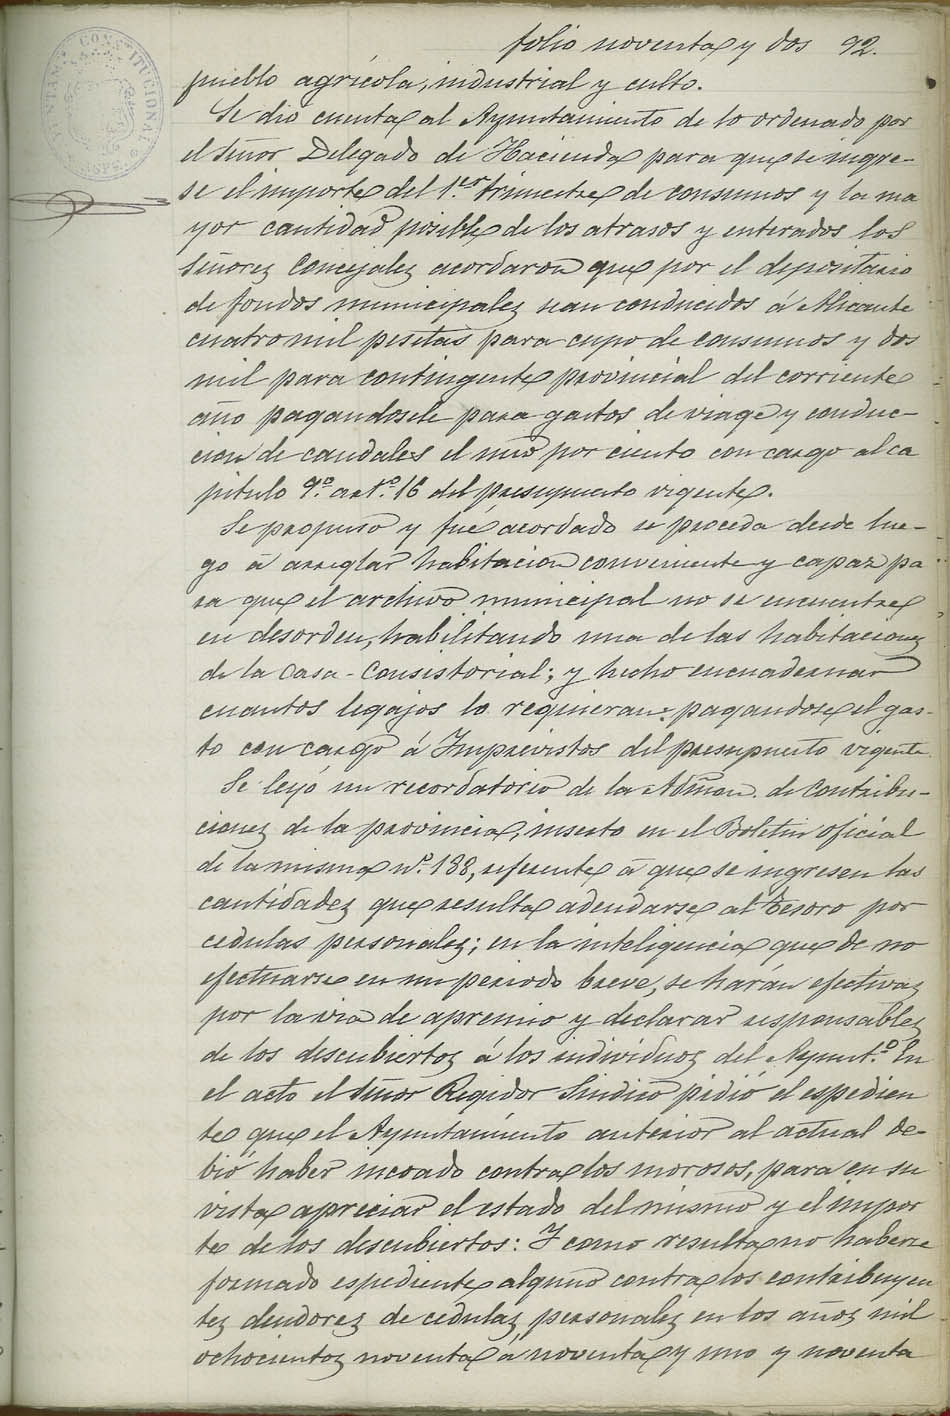 folio noventa y dos 92.
pueblo agrícola, industrial y culto.
Se dió cuenta al Ayuntamiento de lo ordenado por
el Señor Delegado de Hacienda para que se ingre-
se el importe del 1.er trimestre de consumos y la ma
yor cantidad posible de los atrasos y enterados los
Señores Concejales acordaron que por el depositario
de fondos municipales sean conducidos á Alicante
cuatro mil pesetas para cupo de consumos y dos
mil para contingente provincial del corriente
año pagandosele para gastos de viage y conduc-
cion de caudales el uno por ciento con cargo al ca
pitulo 9.º art.º 16 del presupuesto vigente.
Se propuso y fué acordado se proceda desde lue-
go á arreglar habitacion conveniente y capaz pa
ra que el archivo municipal no se encuentre
en desorden, habilitando una de las habitaciones
de la Casa-Consistorial; y hecho encuadernar
cuantos legajos lo requieran: pagandose el gas-
to con cargo á Imprevistos del presupuesto vigente
Se leyó un recordatorio de la Admon. de Contribu-
ciones de la provincia, inserto en el Boletin oficial
de la misma n.º 138, referente á que se ingresen las
cantidades que resulta adeudarse al Tesoro por
cedulas personales; en la inteligencia que de no
efectuarse en un periodo breve, se harán efectivas
por la via de apremio y declarar responsables
de los descubiertos á los individuos del Ayunt.º En
el acto el Señor Regidor Sindico pidió el espedien
te que el Ayuntamiento anterior al actual de-
bió haber incoado contra los morosos, para en su
vista apreciar el estado del mismo y el impor
te de los descubiertos: Y como resulta no haberse
formado espediente alguno contra los contribuyen
tes deudores de cedulas personales en los años mil
ochocientos noventa á noventa y uno y noventa